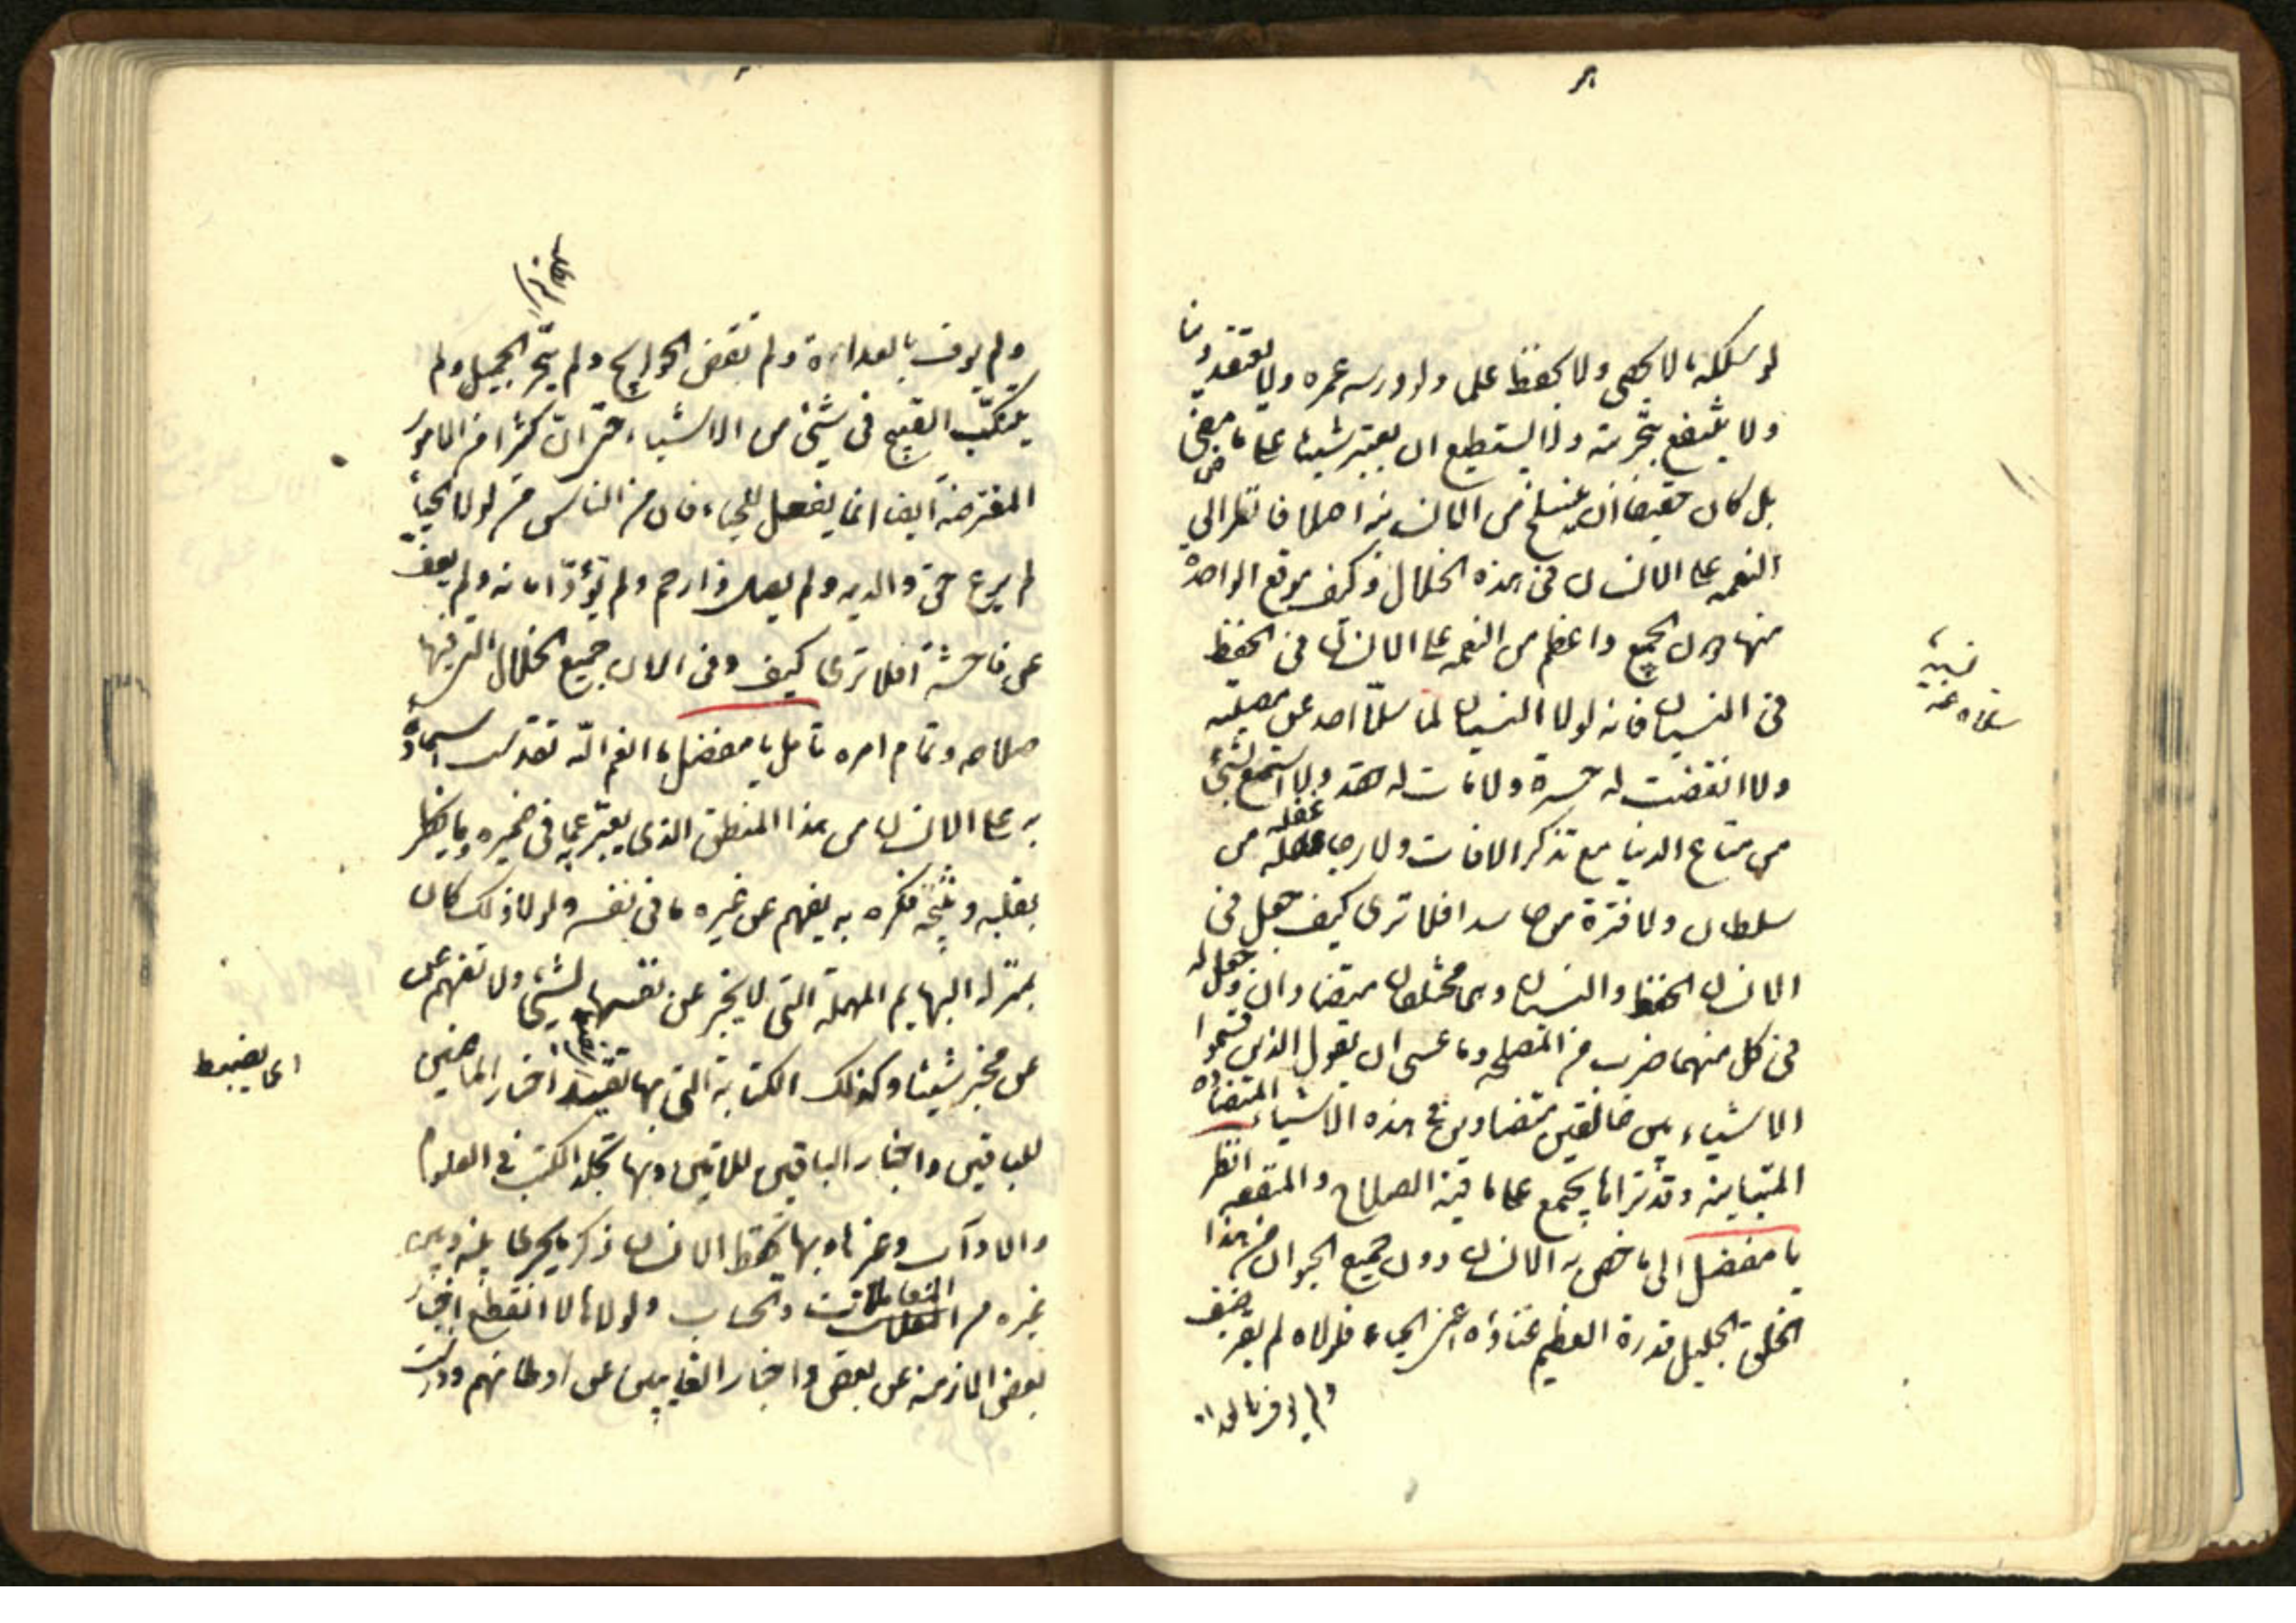 لو سلكه ما لا يحصى ولا يحفظ علما ولو درسه عمره ولا يعتقد دينا
ولا ينتفع بتجربة ولا يستطيع ان يعتبر شيئا على ما مضى
بل كان حقيقا ان ينسلخ من الانسانية اصلا فانظر الى
النعمة على الانسان في هذه الخلال وكيف موقع الواحدة
منها دون الجميع واعظم من النعمة على الانسان في الحفظ
في النسيان فانه لولا النسيان لما سلا احد عن مصيبة
ولا انقضت له حسرة ولا مات له حقد ولا استمتع بشيء
من متاع الدنيا مع تذكر الافات ولا رجا غفلة من
سلطان ولا فترة من حاسد افلا ترى كيف جعل في
الانسان الحفظ والنسيان وهما مختلفان متضادان وجعل له
في كل منهما ضرب من المصلحة وما عسى ان يقول الذين قسموا
الاشياء بين خالقين متضادين في هذه الاشياء المتضادة
المتباينة وقد تراها يجتمع على ما فيه الصلاح والمنفعه انظر
يا مفضل الى ما خص به الانسان دون جميع الحيوان من هذا
الخلق الجليل قدرة العظيم غناؤه اعنى الحياء فلولاه لم يقر ضيف
ولم يوف بالعدا
نسيه
سلاه عنه
ولم يوف بالعداة ولم تقض الحوايج ولم يتحر الجميل ولم
يتنكب القبيح في شيء من الاشياء حتى ان كثيرا من الامور
المفترضة ايضا انما يفعل للحياء فان من الناس من لولا الحياء
لم يرع حق والديه ولم يصل ذا رحم ولم يؤد امانة ولم يعف
عن فاحشة افلا ترى كيف وفى الانسان جميع الخلال التي فيها
صلاحه وتمام امره تأمل يا مفضل ما انعم الله تقدست اسماؤه
به على الانسان من هذا المنطق الذي يعبر به عما في ضميره وما يخطر
بقلبه ونتيجه فكره به يفهم عن غيره ما في نفسه ولولا ذلك كان
بمنزلة البهايم المهملة التي لا يخبر عن نفسها بشيء ولا تفهم عن
عن مخبر شيئا وكذلك الكتابة التي بها تقيد اخبار الماضين
للباقين واخبار الباقين للاتين وبها تخلد الكتب في العلوم
والاداب وغيرها وبها يحفظ الانسان ذكر ما يجرى بينه وبين
غيره من المعاملات والحساب ولولاها لانقطع اخبار
بعض الازمنة عن بعض واخبار الغايبين عن اوطانهم ودرست
اى يضبط